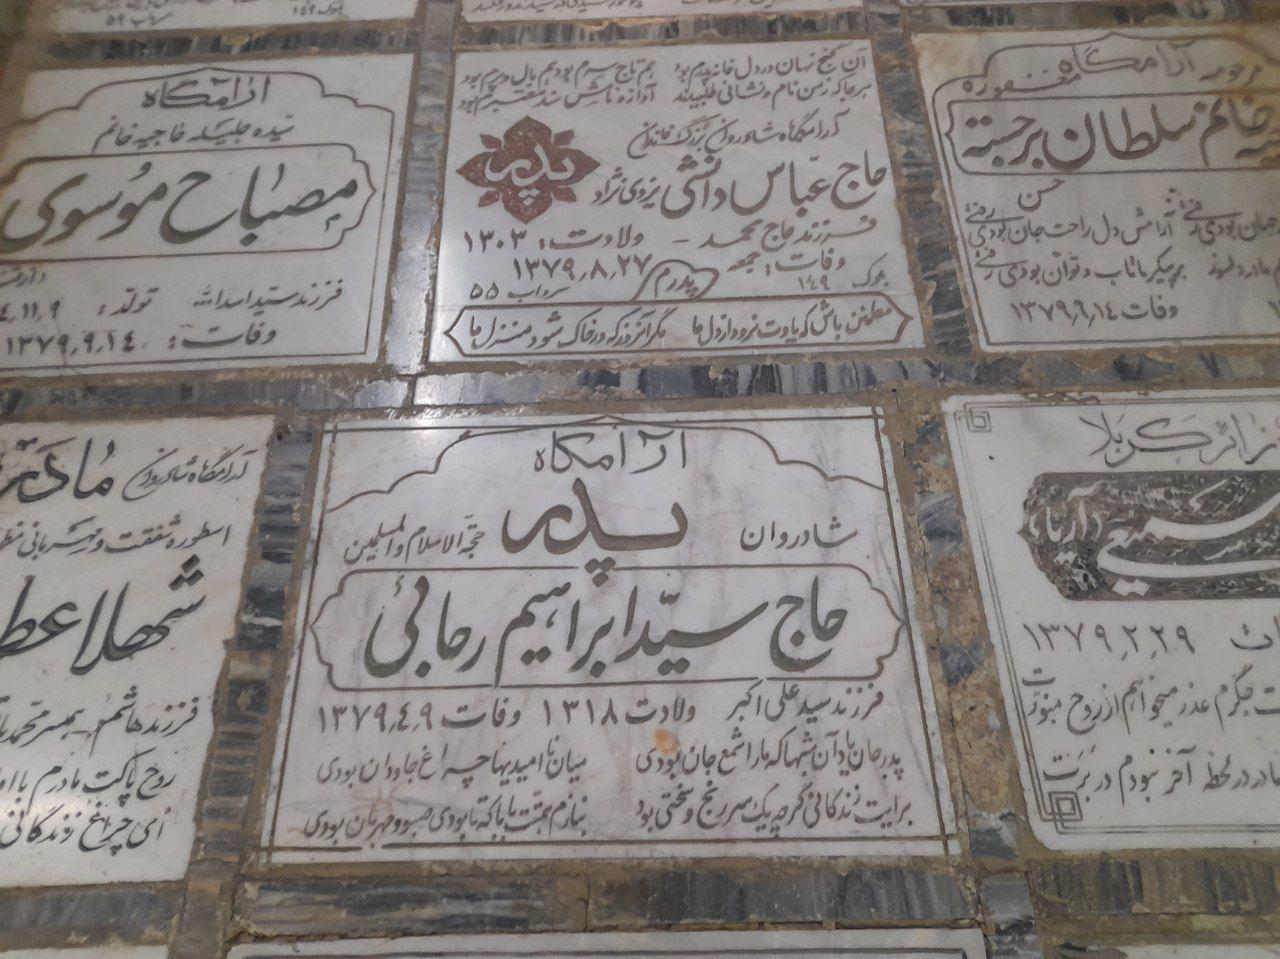 بلوک ۱۴۹
سرداب ۵۹
آرامگاه
سیّده جلیله حاجیه خانم
مصباح موسوی
فرزند سید اسدالله تولد:
وفات: ۱۳۷۹٫۹٫۱۴
آن گنج نهان در دل خانه پدرم بود هم تاج سرم بود هم بال و پرم بود
هر جا که ز من نام و نشانی طلبیدند آوازه نامش سند معتبرم بود
آرامگاه شادروان بزرگ خاندان
پدر
حاج عبّاس دانشی یزدی نژاد
فرزند حاج محمد – ولادت: ۱۳۰۳
وفات: جمعه ۱۳۷۹٫۸٫۲۷
بلوک ۱۴۹ پدرم سرداب ۵۵
مطمئن باش که یادت نرود از دل ما مگر آنروز که در خاک شود منزل ما
آرامگاه
مغفوره
خانم سلطان برجسته
حسن
آرامش دل راحت جان بودی رفتی
بر پیکر ما تاب و توان بودی رفتی
وفات ۱۳۷۹٫۹٫۱۴
آرامگاه شادروان مادر
اسطوره شفقت و مهربانی
شهلا عط
فرزند هاشم – همسر محمد
روح پاکت مادرم با
ای چراغ زندگانی
آرامگاه
پدر
شادروان حجة الاسلام والمسلمین
حاج سیّد ابراهیم رجائی
فرزند سید علی اکبر ولادت ۱۳۱۸ وفات ۱۳۷۹٫۴٫۹
پدر جان یاد آن شبها که ما را شمع جان بودی میان ناامیدیها چراغ جاودان بودی
برایت زندگانی گرچه یک سر رنج و سختی بود بنازم همتت بابا که تا بودی صبور و مهربان بودی
زائر کربلا
سمیعی (آریا)
۱۳۷۹٫۲٫۲۹
جگرم عذر میخواهم از روح منورت
مادر در لحظه آخر نبودم در برت